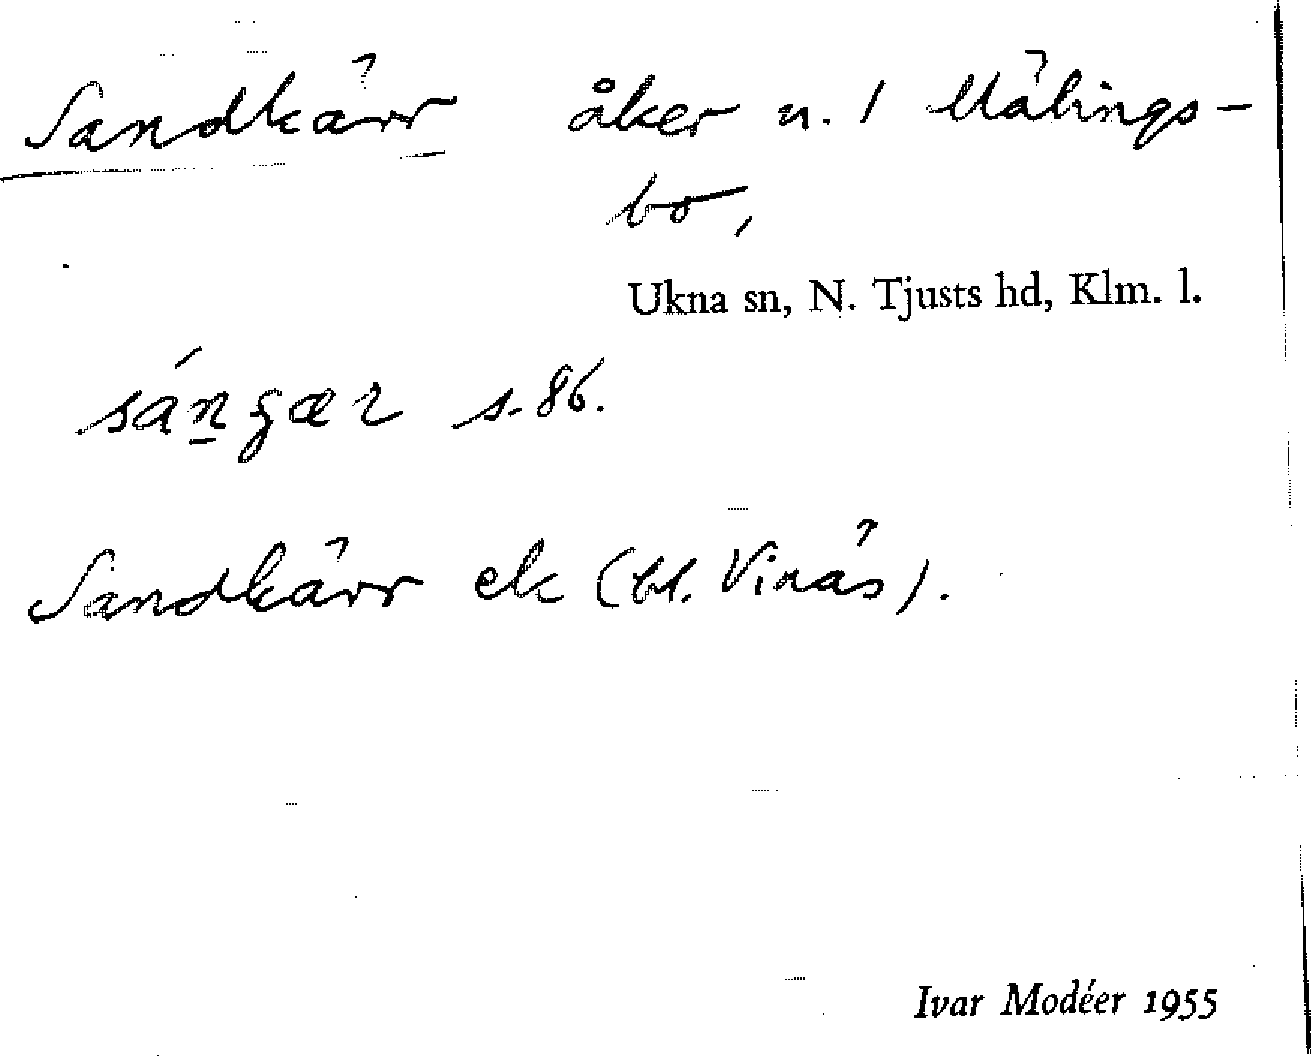 Sandkärr åker n. 1 Mälings-
bo,
Ukna sn, N. Tjusts hd, Klm. l.
s. 86.
Sandkärr ek (bl. Vinäs).
Ivar Modéer 1955